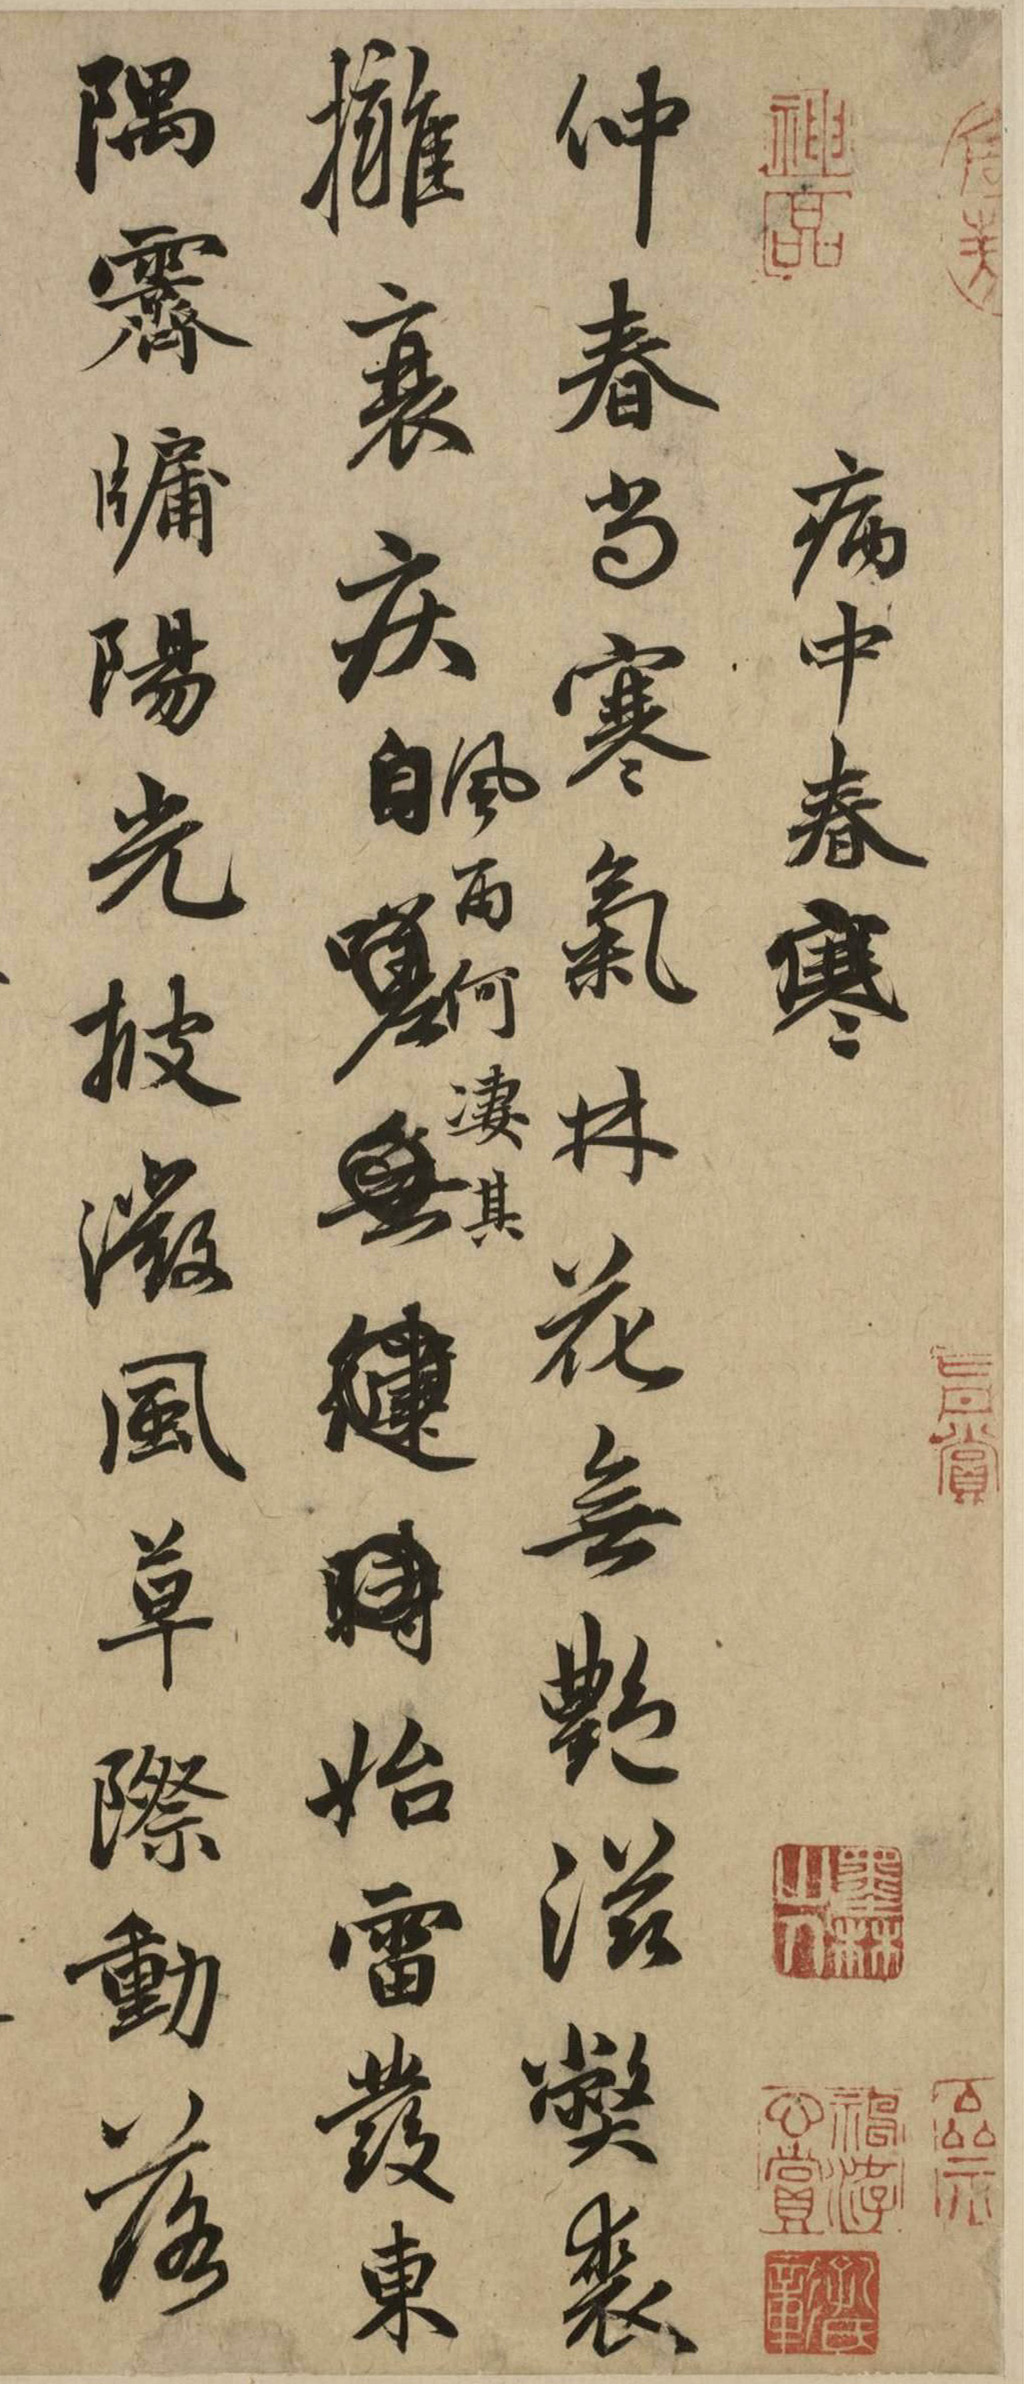 病中春寒
仲春尚寒氣林花無艷滋弊裘
擁衰疾自嗟無健時始雷發東
風雨何凄其
隅霽牖陽光披微風草際動落